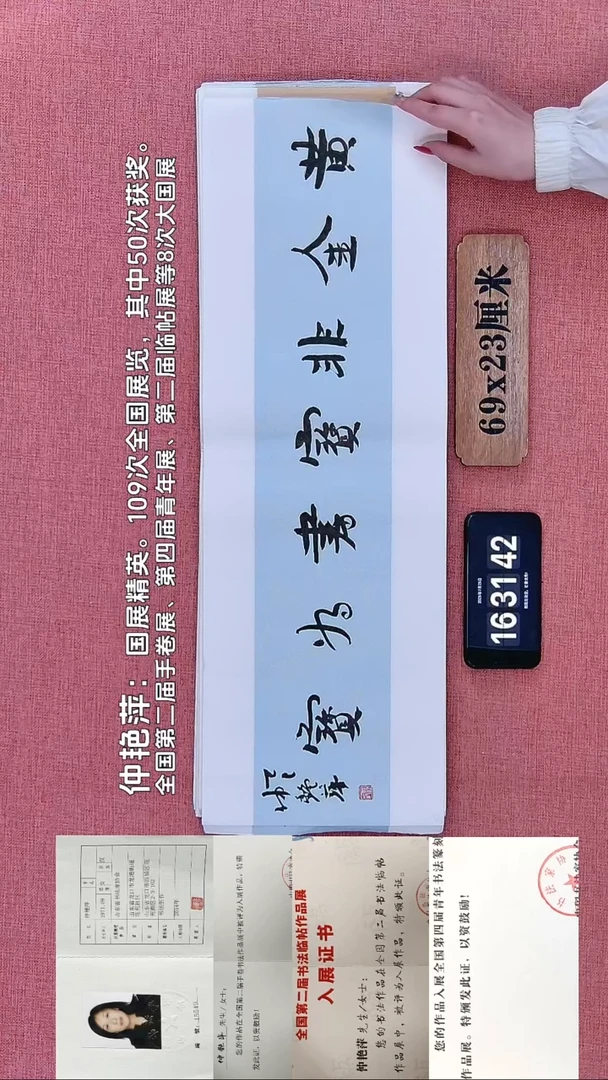 仲艳萍：国展精英。109次全国展览，其中50次获奖。
全国第二届手卷展、第四届青年展、第二届临帖展等8次大国展
黄金非宝书为宝
仲艳萍
69x23厘米
16 31 42
仲艳萍 先生/女士：
您的作品在全国第二届手卷书法作品展中被评为入展作品，特颁
发此证，以资鼓励！
全国第二届书法临帖作品展
入展证书
仲艳萍 先生/女士：
您的书法作品在全国第二届书法临帖
作品展中，被评为入展作品，特颁此证。
您的作品入展全国第四届青年书法篆刻
作品展。特颁发此证，以资鼓励！